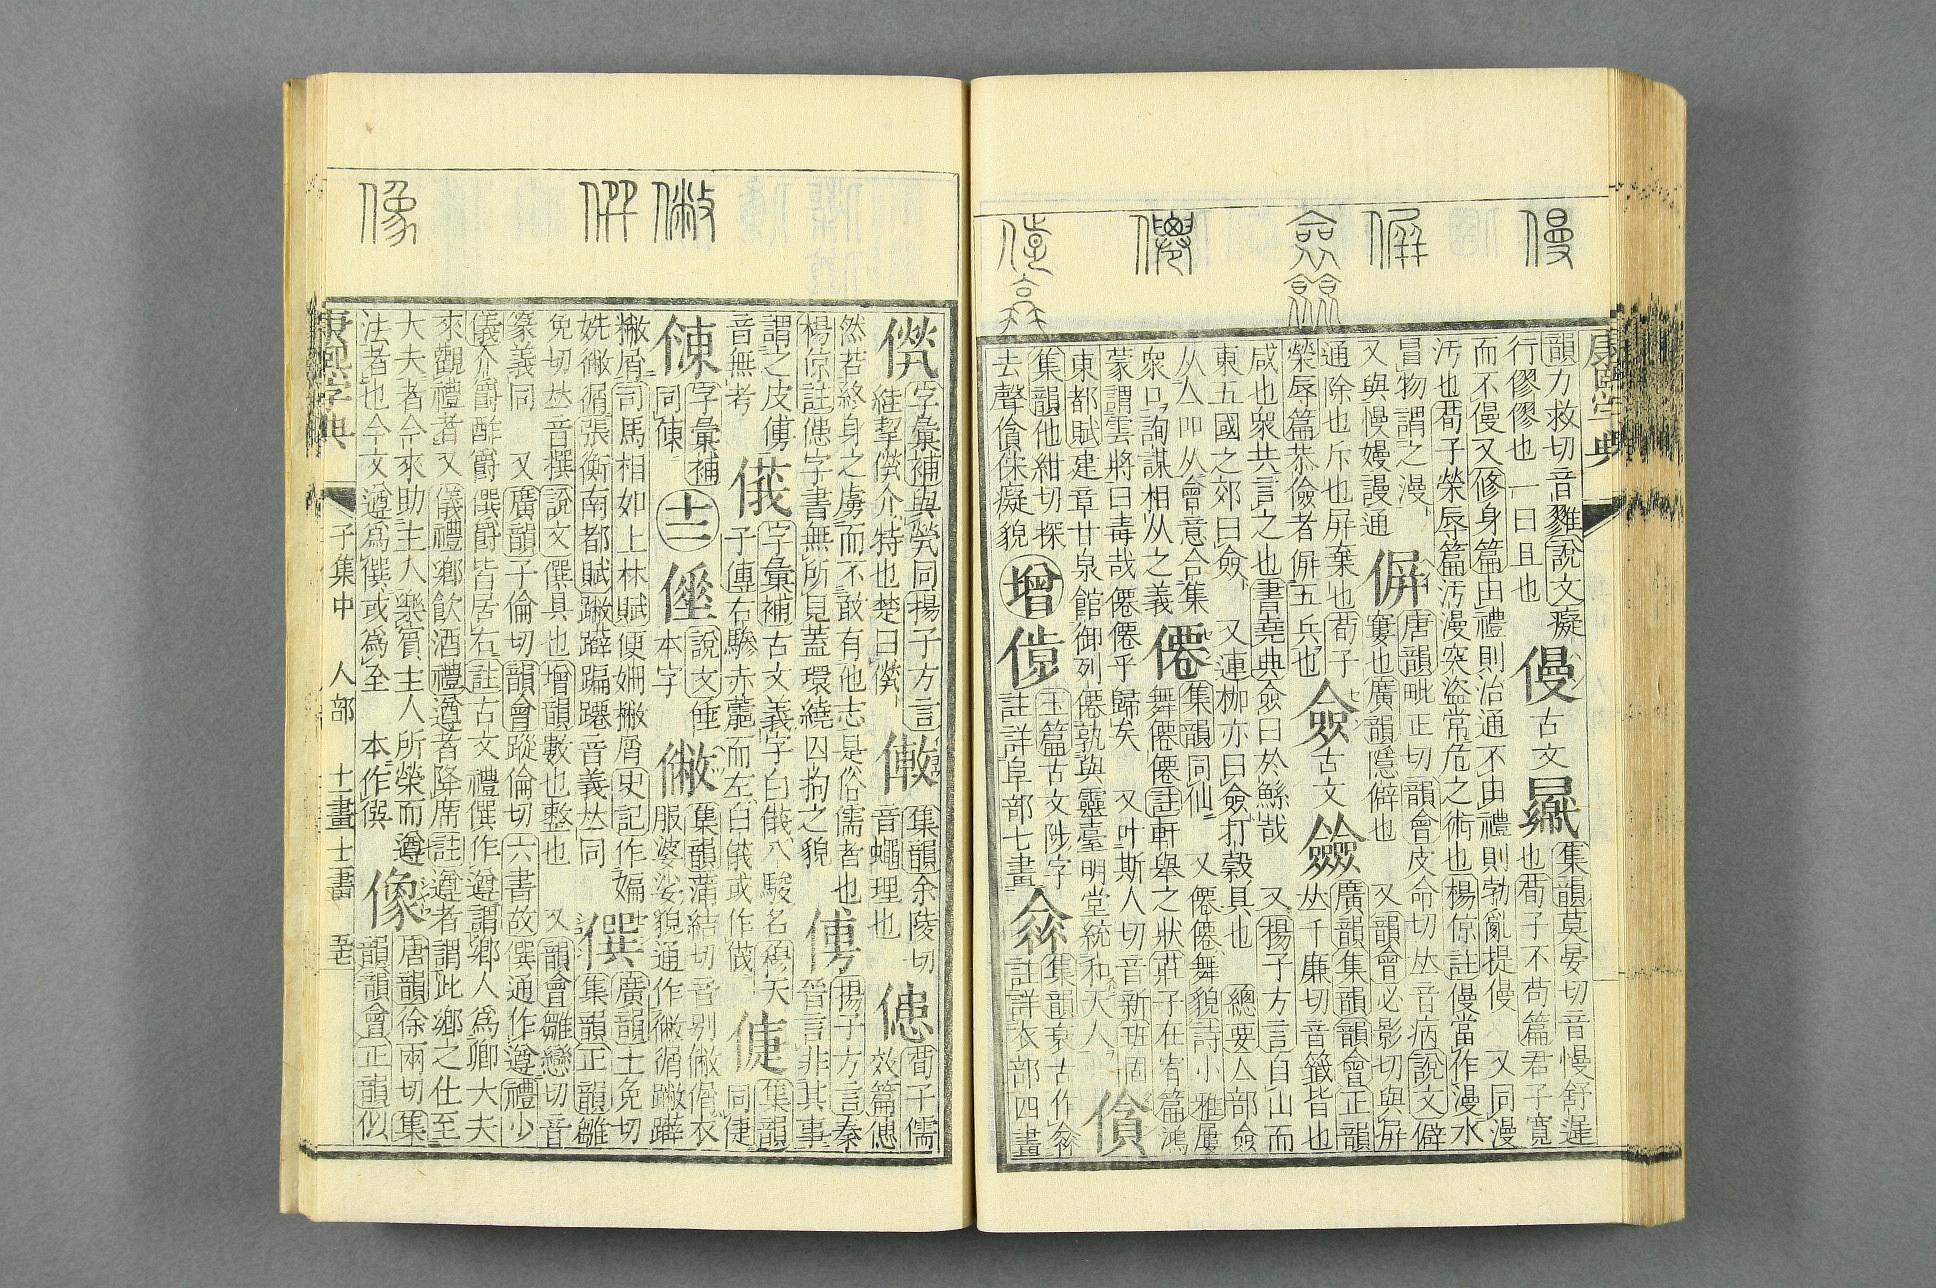 僈
偋
僉
僊
韻力救切音雡說文癡
行僇僇也一曰且也
僈 古文
集韻莫晏切音慢舒遲
也荀子不苟篇君子寬
而不僈又修身篇由禮則治通不由禮則勃亂提僈 又同漫
汚也荀子榮辱篇汚漫突盜常危之術也楊倞註僈當作漫水
冒物謂之漫
又與慢嫚謾通
偋
唐韻毗正切韻會皮命切𠀤音病說文僻
寠也廣韻隱僻也 又韻會必影切與屏
通除也斥也屏棄也荀子
榮辱篇恭儉者偋五兵也
僉 古文
廣韻集韻韻會正韻
𠀤千廉切音籤皆也
咸也衆共言之也書堯典僉曰於鯀哉 又揚子方言自山而
東五國之郊曰僉 又連枷亦曰僉打穀具也 總要亼部僉
从亼吅从从會意合集
衆口詢謀相从之義
僊
集韻同仙 又僊僊舞貌詩小雅屢
舞僊僊註軒舉之狀莊子在宥篇鴻
蒙謂雲將曰毒哉僊僊乎歸矣 又叶斯人切音新班固
東都賦建章甘泉館御列僊孰與靈臺明堂統和天人
僋
集韻他紺切探
去聲僋俕癡貌
增
玉篇古文陟字
註詳阜部七畫
集韻衰古作
註詳衣部四畫
像
僎
字彙補與煢同揚子方言
絓挈 介特也楚曰
集韻余陵切
音蠅理也
荀子儒
效篇
然若終身之虜而不敢有他志是俗儒者也
楊倞註 字書無所見蓋環繞四拘之貌
揚子方言秦
晉言非其事
謂之皮傅
音無考
字彙補古文義字白 八駿名穆天
子傳右驂赤 而左白 或作
集韻
同倢
字彙補
同倲
十二
說文倕
本字
集韻蒲結切音別 㣯衣
服婆娑貌通作 㣯 躃
撇屑司馬相如上林賦便姍撇屑史記作媥
姺 㣯張衡南都賦 躃蹁躚音義𠀤同
僎
廣韻士免切
集韻正韻雛
免切𠀤音撰說文僎具也增韻數也整也 又韻會雛戀切音
篆義同 又廣韻子倫切韻會蹤倫切六書故僎通作遵禮少
儀介爵酢爵僎爵皆居右註古文禮僎作遵謂鄉人爲卿大夫
來觀禮者又儀禮鄉飲酒禮遵者降席註遵者謂此鄉之仕至
大夫者今來助主人樂賓主人所榮而遵
法者也今文遵爲僎或爲全 本作僎
像
唐韻徐兩切集
韻韻會正韻似
康熙字典 子集中 人部 十一畫 十二畫